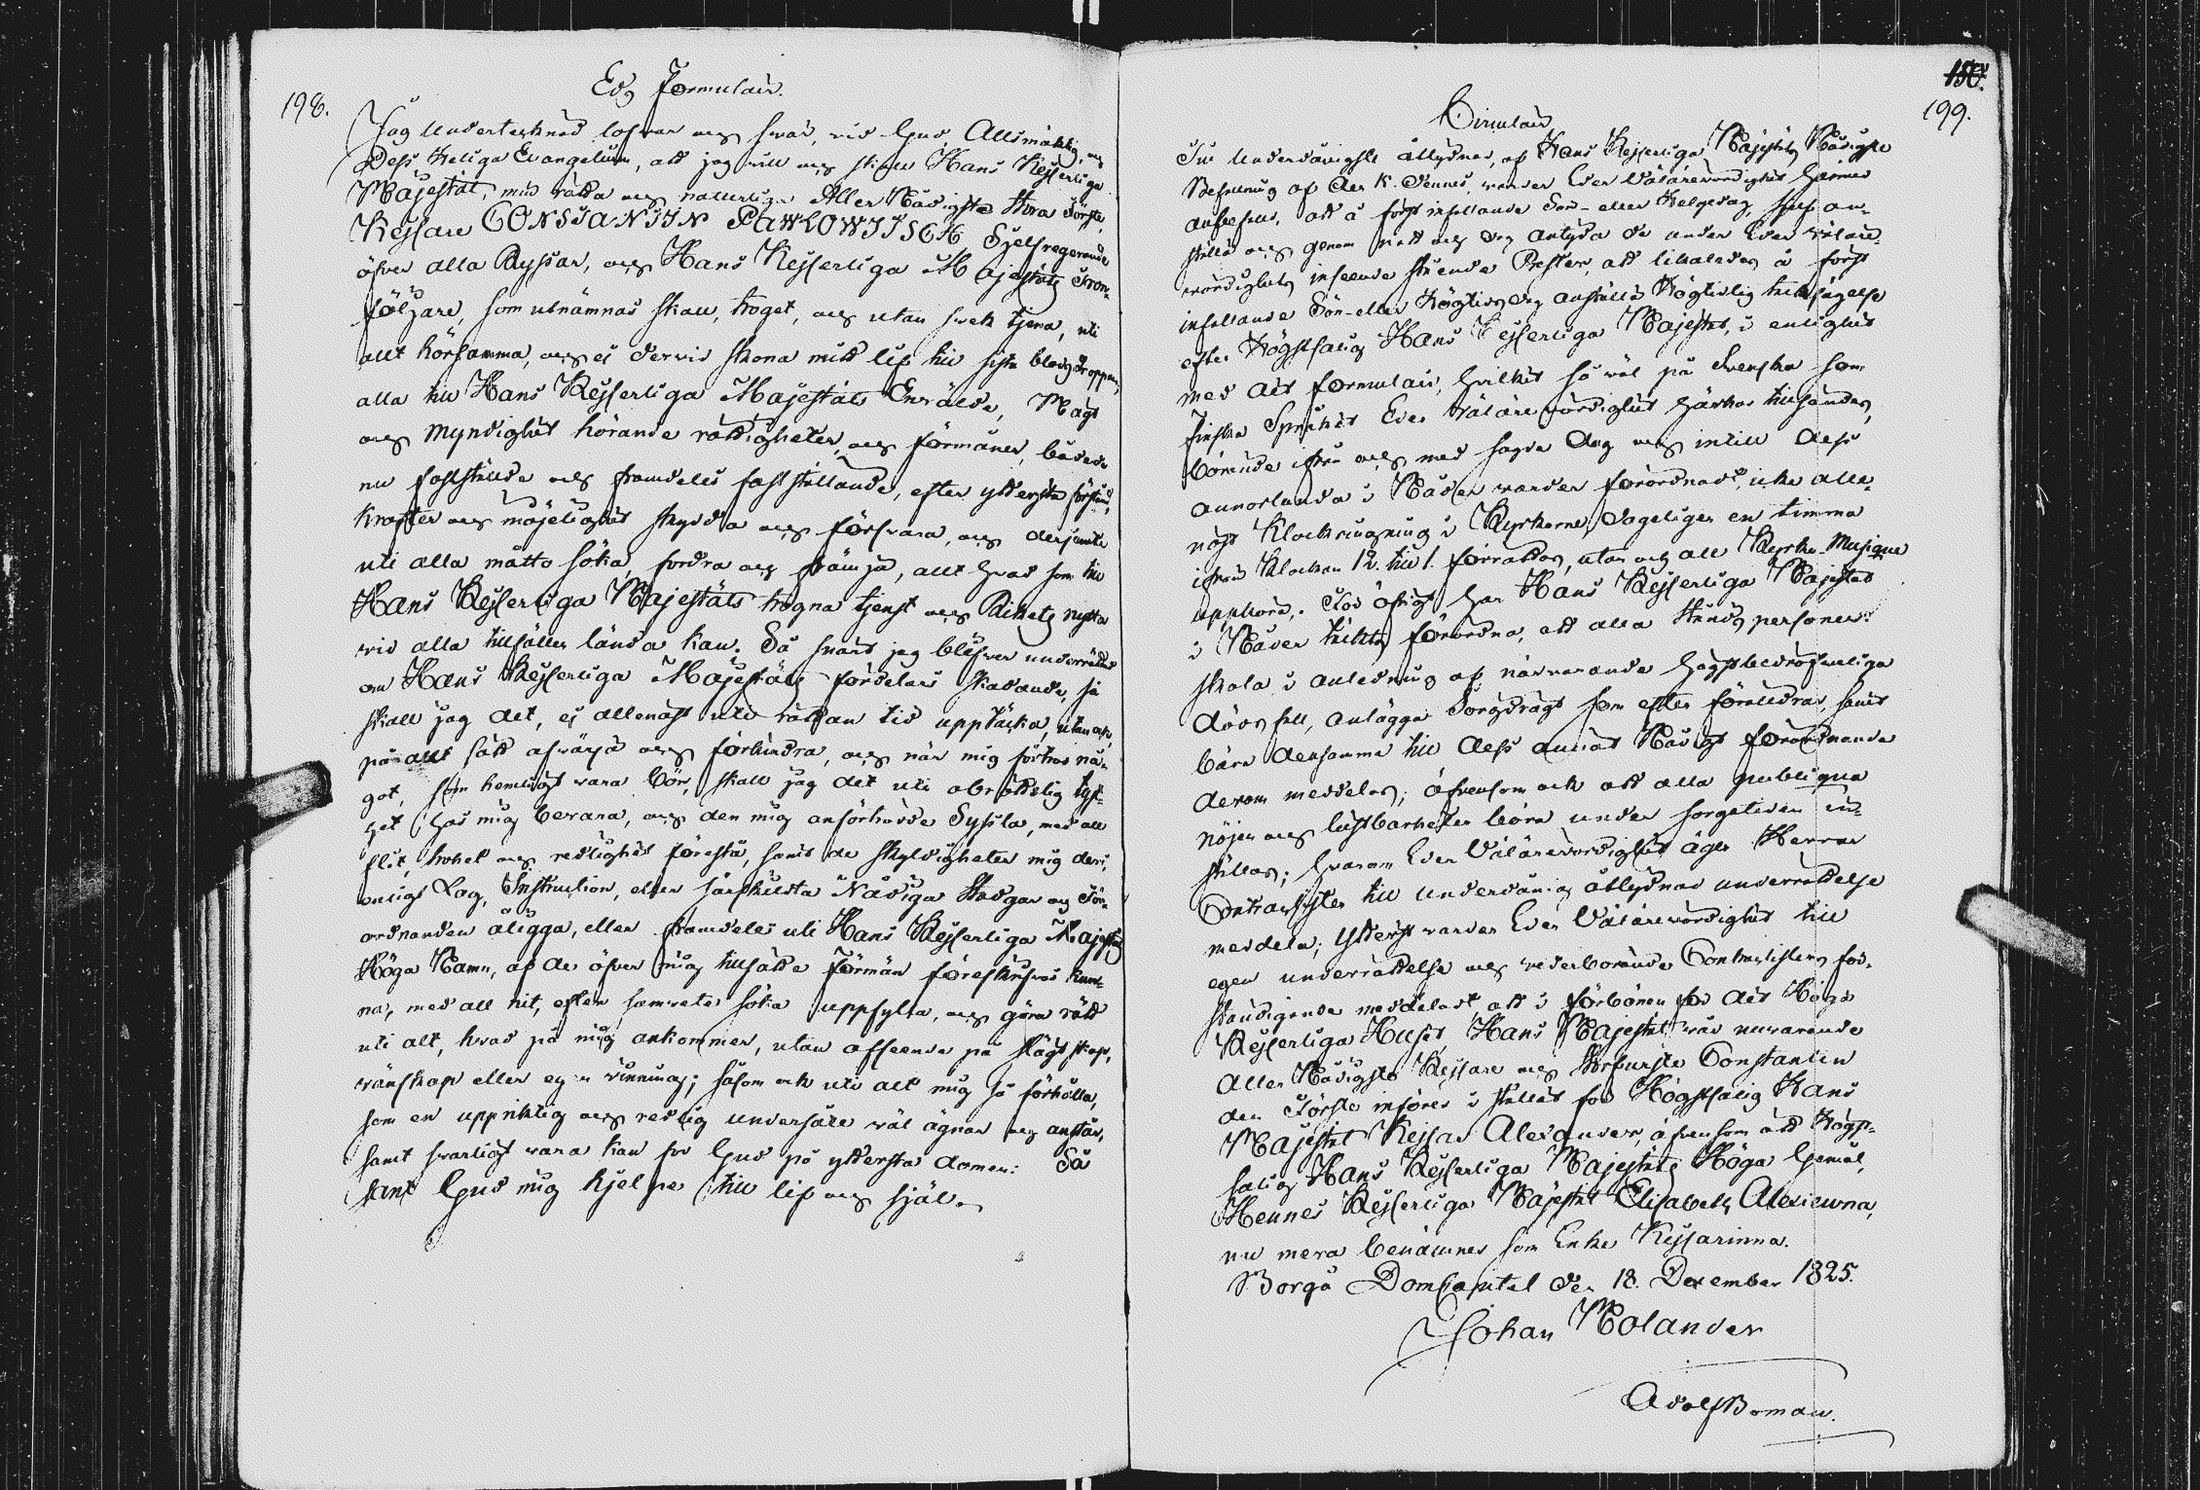 198.
Eds Formulair.
Jag Undertecknad lofwar och swär, wid Gud Allsmäktig, och
Dess Heliga Evangelium, att jag will och skall Hans Kejserliga
Majestät, min rätta och naturliga Aller Nådigste Stora Förste,
Kejsare CONSTANTIN PAWLOWITSCH, Sjelfregerande
öfver alla Ryssar, och Hans Kejserliga Majestäts Tron-
följare, som utnämnas skall, troget, och utan swek tjena, uti
allt hörsamma, och ej dervid skona mitt lif till sista blodsdroppan,
alla till Hans Kejserliga Majestäts Enwälde, Magt
och Myndighet hörande rättigheter och förmåner, både de
nu faststälde och framdeles fastställande, efter yttersta förstånd,
krafter och möjelighet skydda och försvara, och derjemte
uti alla måtto söka, fordra och främja, allt hvad som till
Hans Kejserliga Majestäts trogna tjenst och Rikets nytta
wid alla tillfällen lända kan. Så snart jag blifver underrättad
om Hans Kejserliga Majestäts fördelars skadande, så
skall jag det, ej allenast uti rättan tid upptäcka, utan ock
på allt sätt afwärja och förhindra, och när mig förtros nå-
got, som hemligt vara bör, skall jag det uti obrottslig tyst-
het hos mig bevara, och den mig anförtrodde Syssla, med all
flit, trohet och redlighet förestå, samt de skyldigheter mig deri,
enligt Lag, Instruction, eller särskilda Nådiga Stadgar och För-
ordnanden åligga, eller framdeles uti Hans Kejserliga Majestäts
Höga Namn, af de öfver mig tillsatte Förmän föreskrifvas kun-
na, med all nit, efter samvete söka uppfylla, och göra rätt
uti alt, hvad på mig ankommer, utan afseende på slägtskap,
wänskap eller egen winning; såsom ock uti alt mig så förhålla,
som en uppriktig och redlig undersåte wäl ägnar och anstår,
samt swarligt vara kan för Gud på yttersta domen: Så
sant Gud mig hjelpe till lif och själ.
150.
199.
Circulair
Till Underdånigste åtlydnad, af Hans Kejserliga Majestäts Nådigste
Befallning af den K. dennes, warder Eder Wälärewördighet härmed
anbefald, att å först infallande Sön- eller Helgedag, sjelf an-
ställa och genom natt och dag antyda de under Eder Wäläre-
wördighets inseende stående Prester, att likaledes å först
infallande Sön- eller Högtidsdag anställa Högtidlig tacksägelse
efter Högstsalig Hans Kejserliga Majestät, i enlighet
med det formulair, hvilket så wäl på Svenska som
Finska Språket Eder Wälärewördighet härhos tillsändes,
börande ifrån och med sagde dag och intill dess
annorlunda i Nåder warder förordnadt, icke alle-
nast Klockringning i Kyrkorne, dageligen en timma
ifrån klockan 12. till 1. förrättas, utan ock all Kyrko-Musique
upphöra. För öfrigt har Hans Kejserliga Majestät
i Nåder täckts förordna, att alla Stånds personer
skola i anledning af närvarande högstbedröfweliga
dödsfall, anlägga Sorgdrägt som efter föräldrar, samt
bära densamma till dess annat Nådigt förordnande
derom meddelas; äfvensom ock att alla publiqua
nöjen och lustbarheter böra under sorgetiden in-
ställas; hvarom Eder Wälärewördighet äger Herrar
Contractister till underdånig åtlydnad underrättelse
meddela; Ytterst warder Eder Wälärewördighet till
egen underrättelse och wederbörande Contractisters för-
ständigande meddelat att i förbönen för det Höga
Kejserliga Huset, Hans Majestät wår nuvarande
Aller Nådigste Kejsare och Storfurste Constantin
den Förste införes i stället för Högstsalig Hans
Majestät Kejsar Alexander, äfvensom att Högst-
salig Hans Kejserliga Majestäts Höga Gemål,
Hennes Kejserliga Majestät Elisabeth Alexiewna,
nu mera benämnes som Enke Kejsarinna.
Borgå DomCapitel den 18. December 1825.
Johan Molander
Adolf Boman.